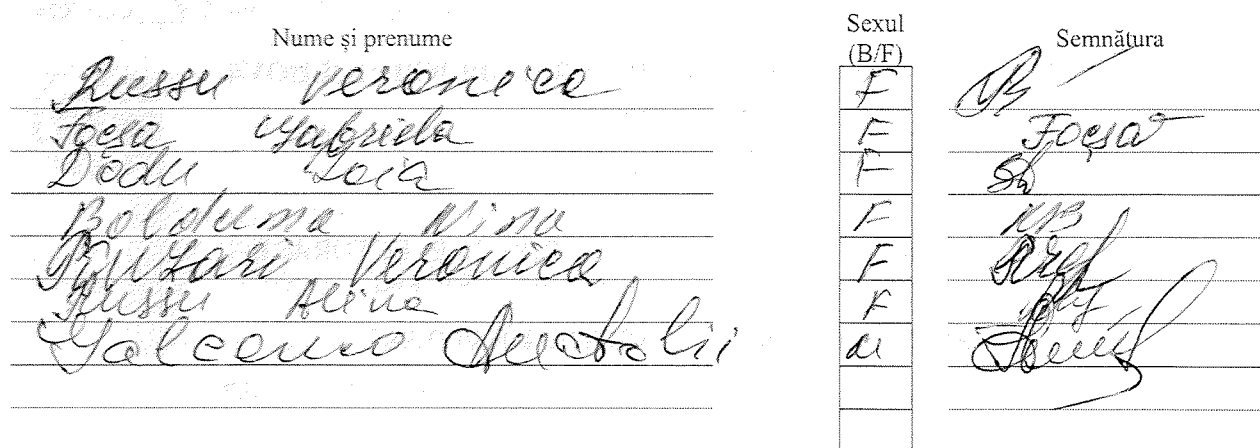 Nume și prenume Sexul (B/F) Semnătura
Russu Veronica F
Focșa Gabriela F Focșa
Dodu Zoia F
Bolduma Nina F NB
Bînzari Veronica F
Russu Alina F
Anatolii M